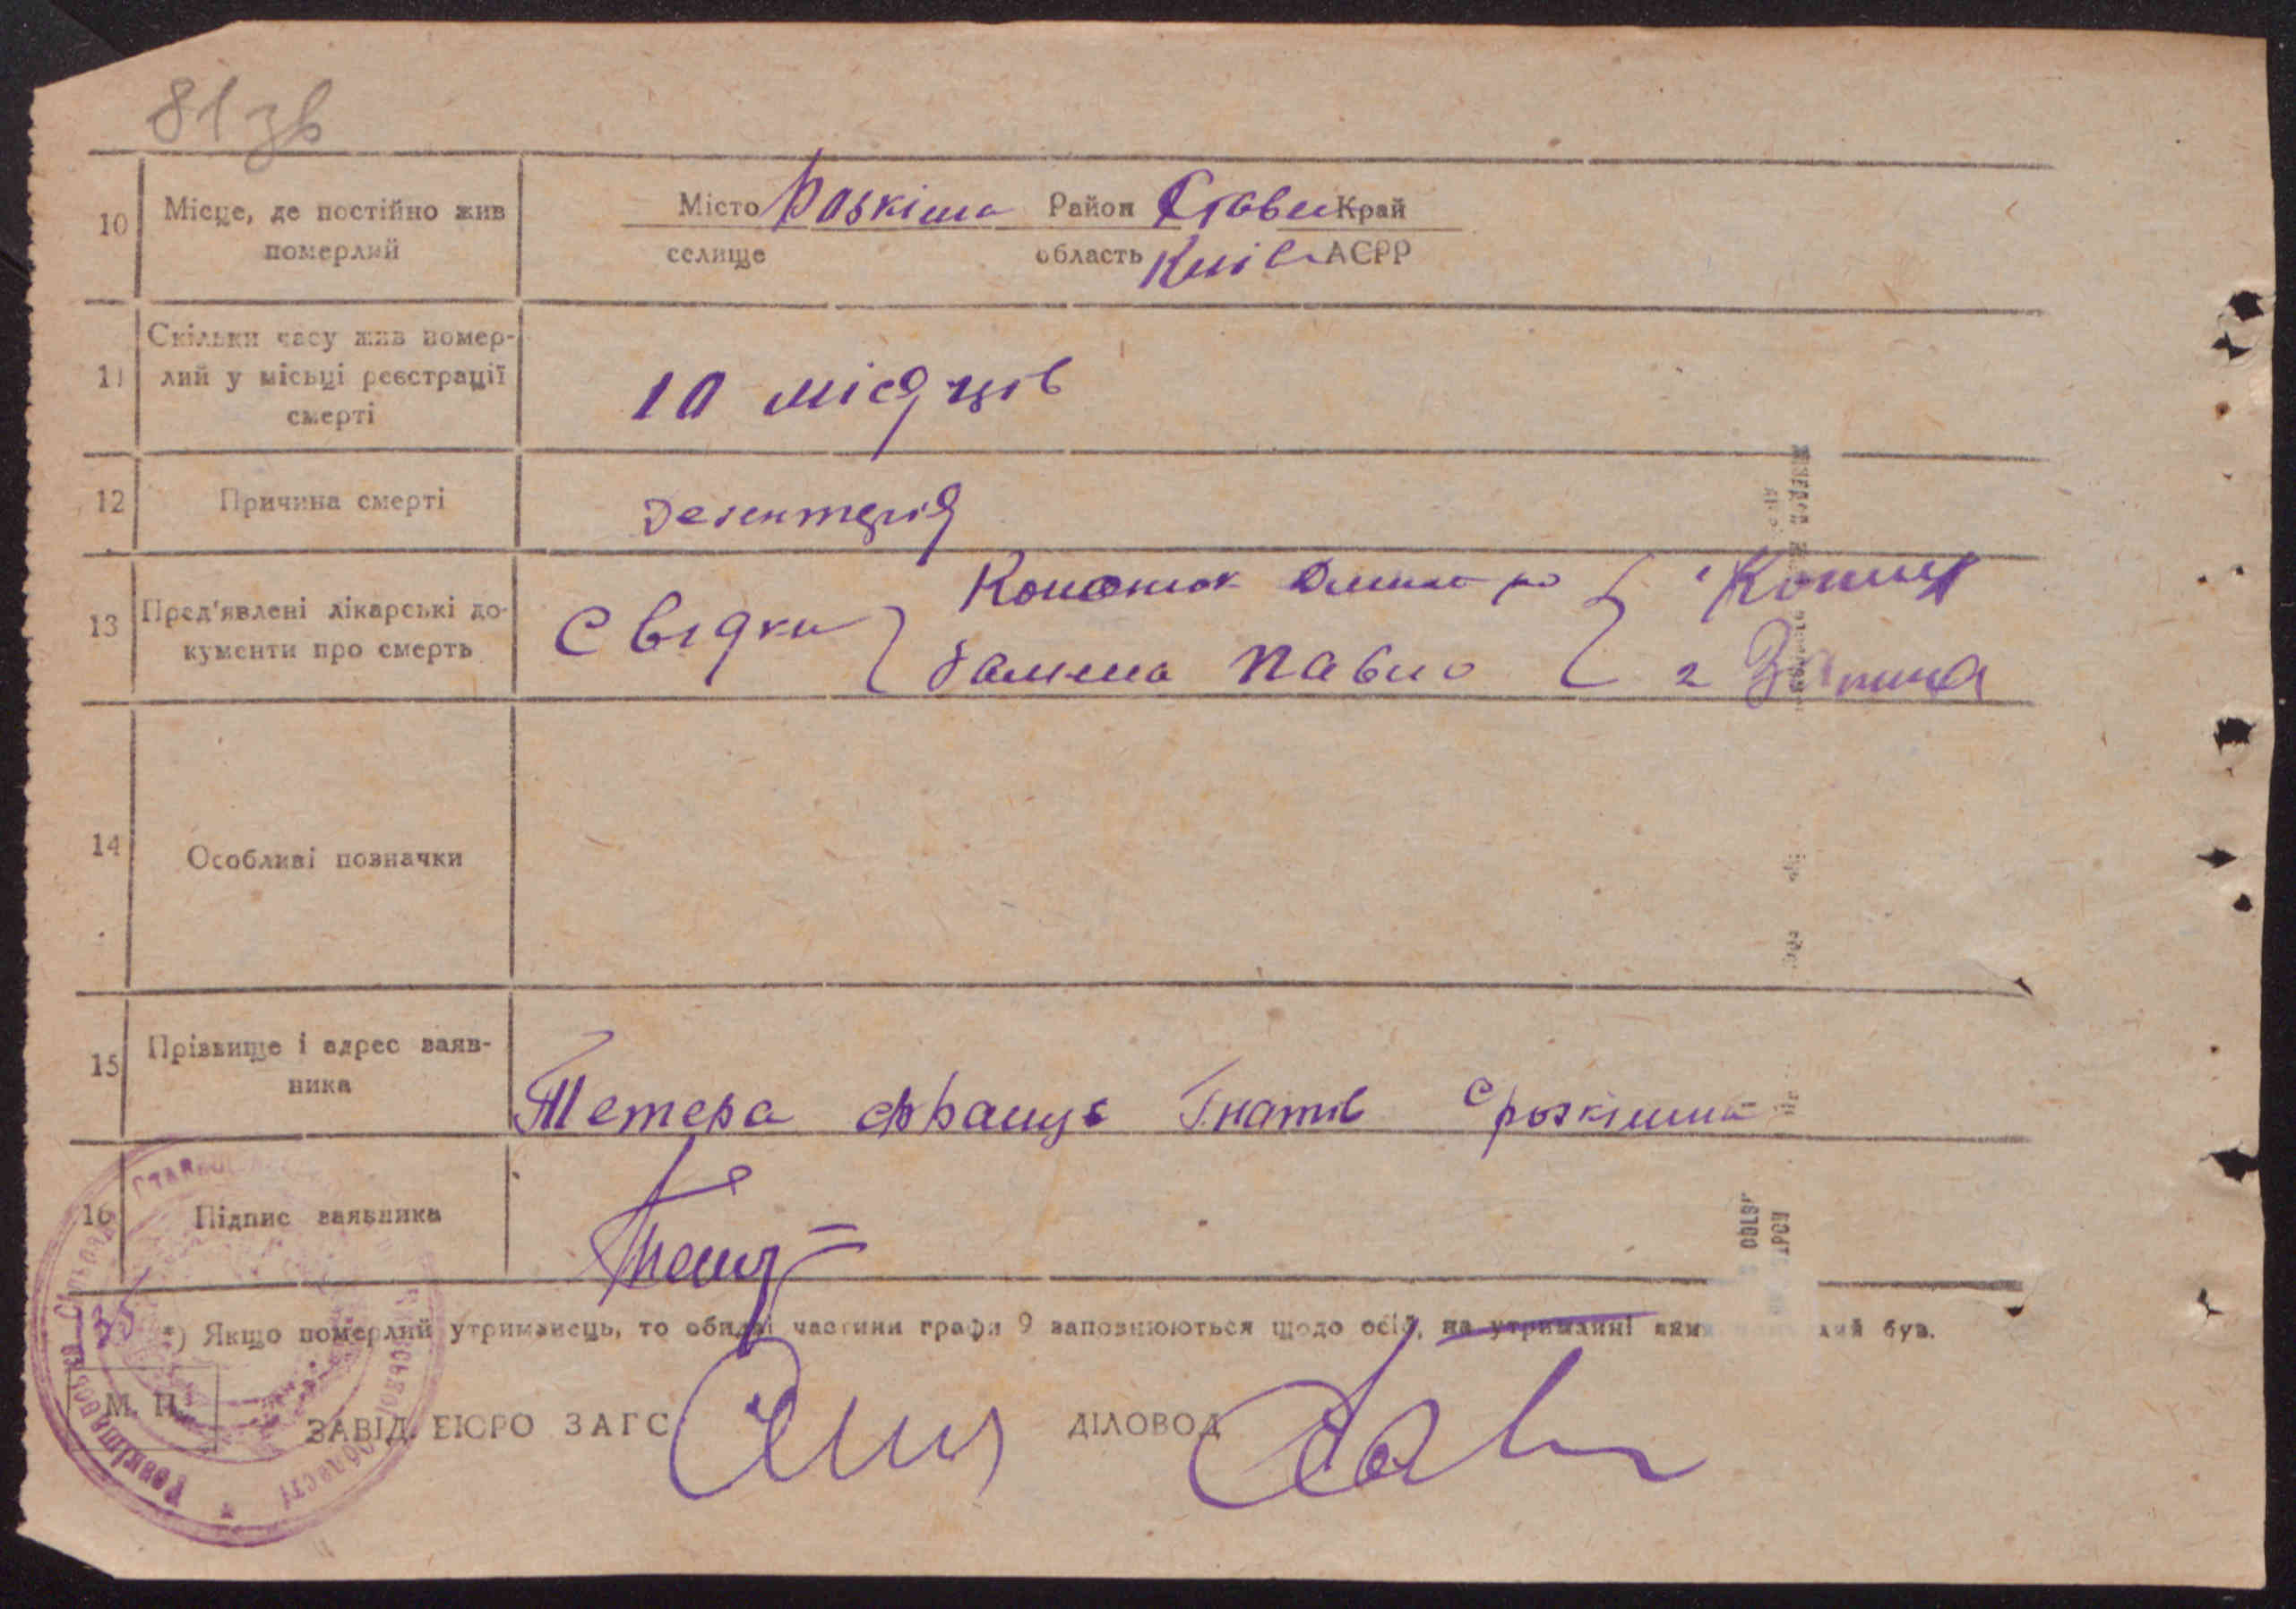 81 зв
10 Місце, де постійно жив померлий
Місто Розкішна Район Стави Край
селище область Київ АСРР
11 Скільки часу жив помер-
лий у місьці реєстрації
смерті
10 місяців
12 Причина смерті
Дезентерія
13 Пред'явлені лікарські до-
кументи про смерть
Свідки
Павло
14 Особливі позначки
15 Прізвище і адрес заяв-
ника
Тетера Франц Гнатів с розкішна
16 Підпис заявника
*) Якщо померлий утриманець, то обидві частини графи 9 заповнюються щодо осіб, на утриманні яких був.
М. П.
ЗАВІД. БЮРО ЗАГС
ДІЛОВОД